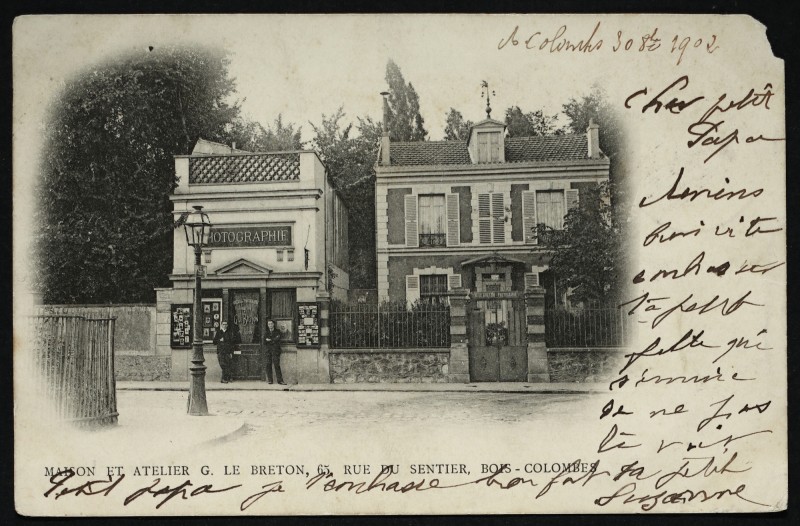 A Colombes 30 8bre 1902
Cher petit
Papa
Reviens
bien vite
embrasser
ta petite
fille qui
s'ennuie
de ne pas
te voir
PHOTOGRAPHIE
MAISON ET ATELIER G. LE BRETON, 65, RUE DU SENTIER, BOIS-COLOMBES
Petit papa je t'embrasse bien fort ta petit
Suzanne